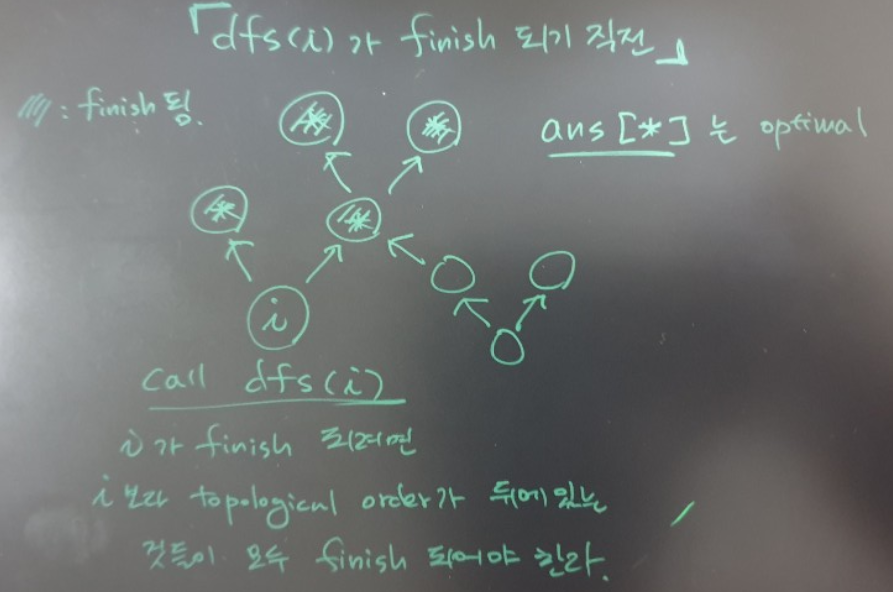 「dfs(i)가 finish 되기 직전」
: finish됨.
ans[*] 는 optimal
* *
* *
i
call dfs(i)
i가 finish 되려면
i보다 topological order가 뒤에있는
것들이 모두 finish 되어야 한다.